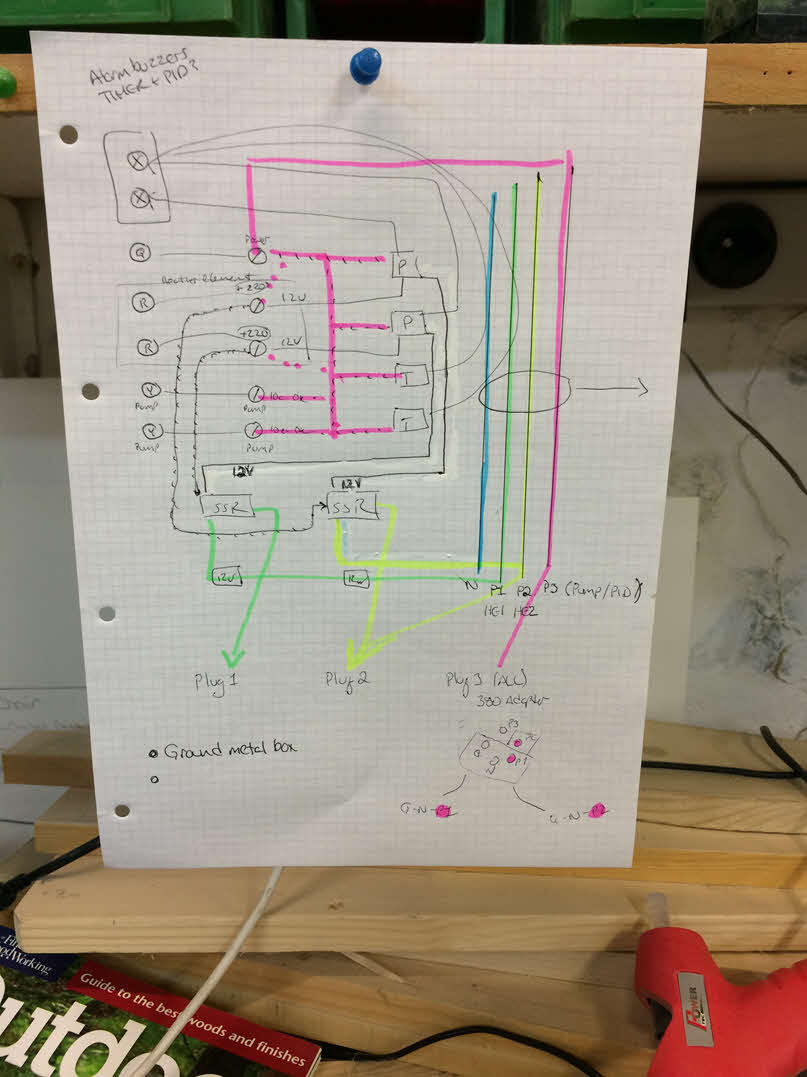 Alarm buzzers
TIMER + PID?
X
X
G
Power
Heather element
+220
R
12V
P1
+220
R
12V
P
Y
Pump
Pump
T
Y
Pump
Pump
T
12V
12V
SSR
SSR
12V
N
P1
P2
P3 (Pump/PID)
HE1
HE2
Plug 1
Plug 2
Plug 3 (ALL)
380 Adapter
P3
P2
G
P1
N
Ground metal box
G-N-P1
G-N-P2
Woodworking
Guide to the best woods and finishes
Outdoo
POWER